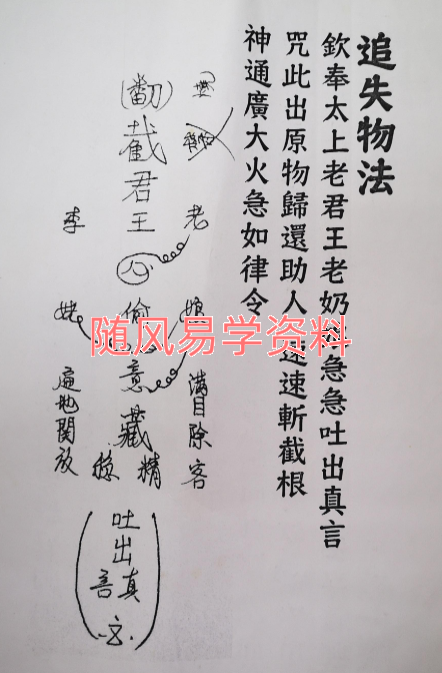 追失物法
欽奉太上老君王老奶急急吐出真言
咒此出原物歸還助人速速斬截根
神通廣大火急如律令
老
娘
滿目除客
截君王心偷意藏
精
李
姥
遍地開放
吐出真言
随风易学资料